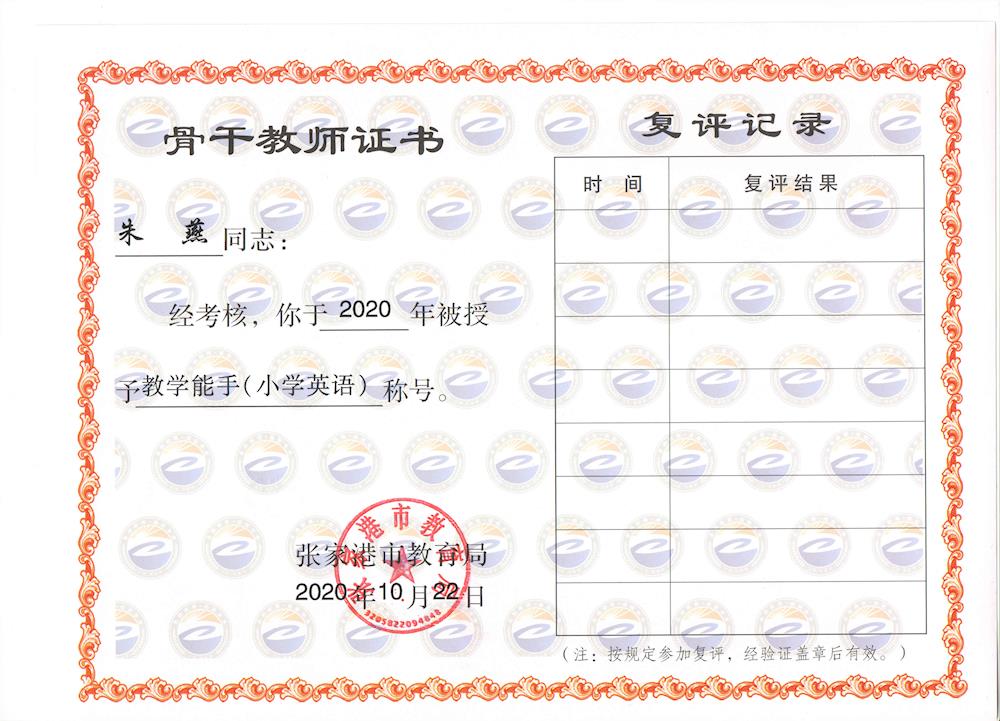 骨干教师证书
朱 燕 同志：
经考核，你于 2020 年被授
予教学能手(小学英语) 称号。
张家港市教育局
2020年10月22日
3205822094848
复评记录
时 间 复评结果
（注：按规定参加复评，经验证盖章后有效。）